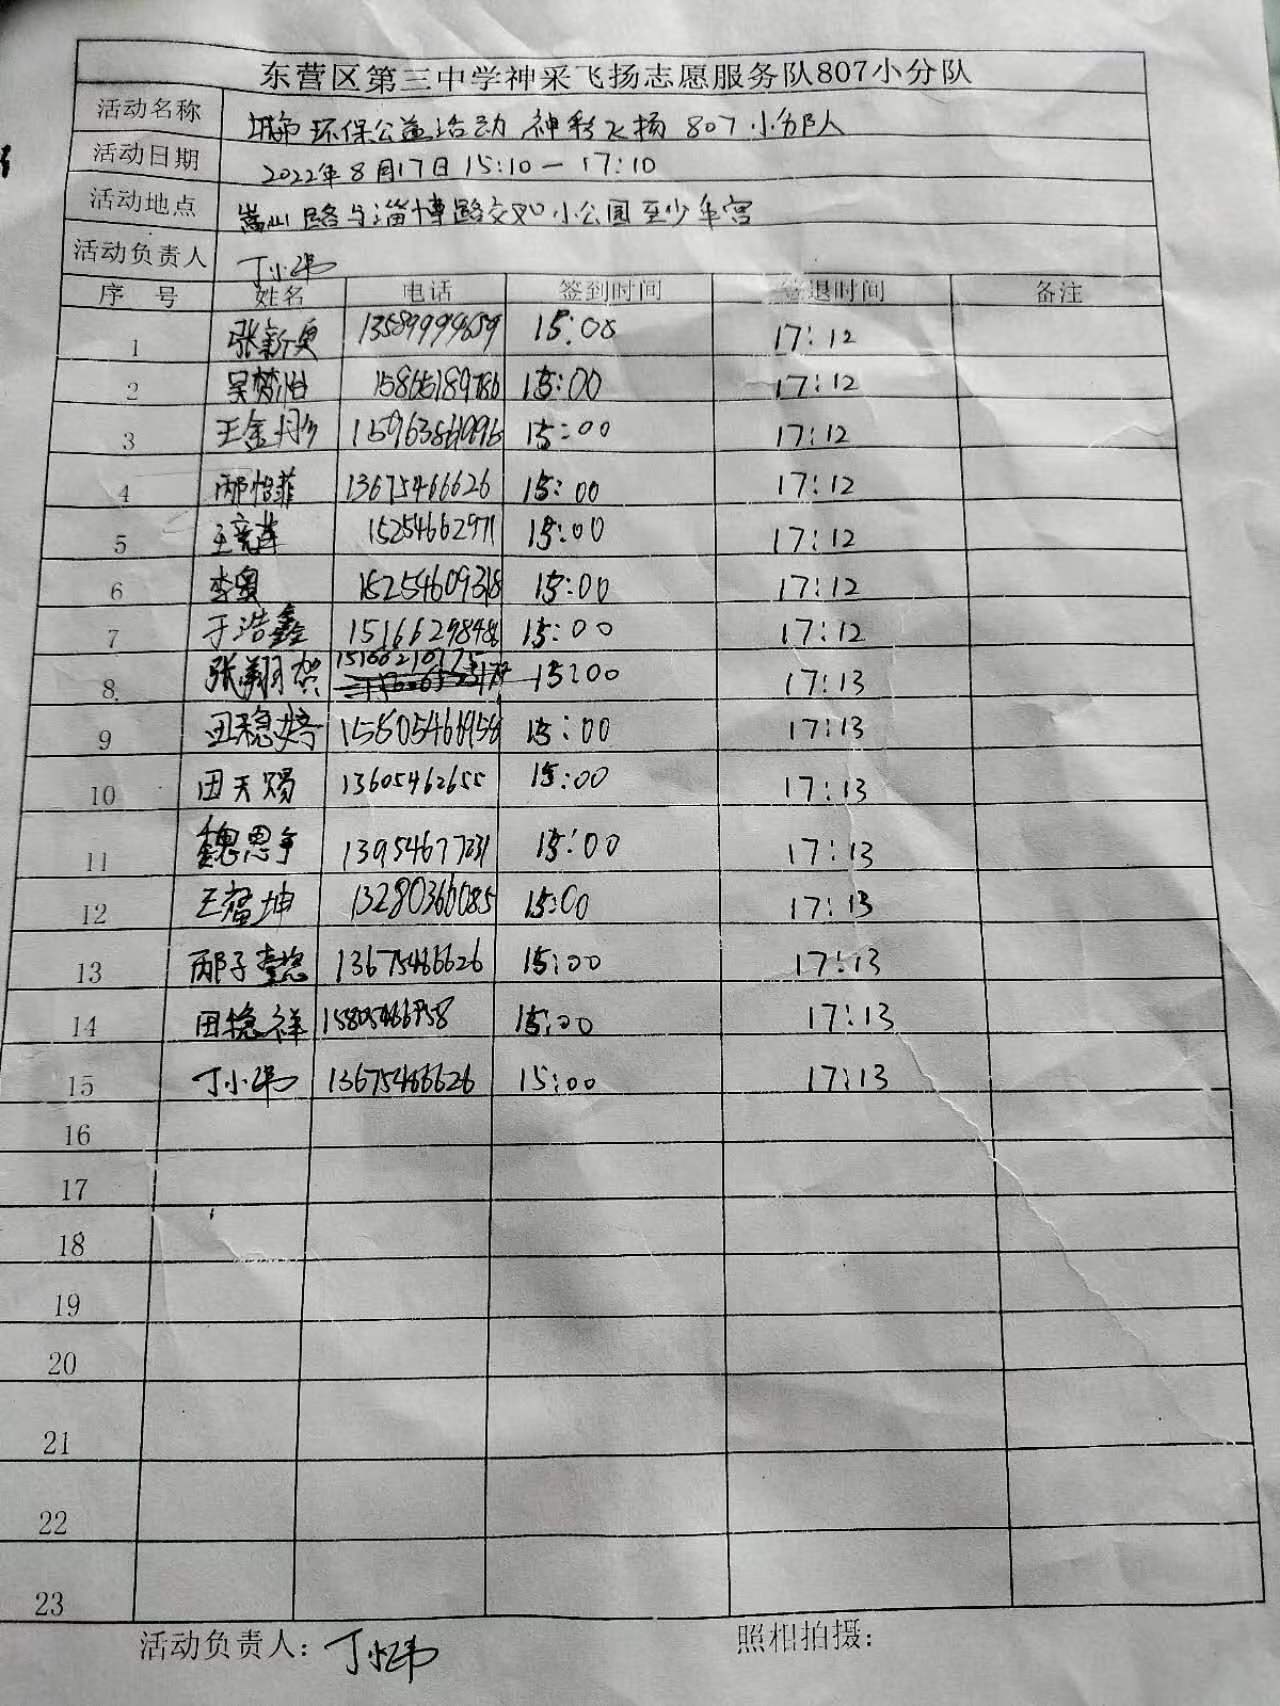 东营区第三中学神采飞扬志愿服务队807小分队
活动名称 城市环保公益活动 神彩飞扬 807小分队
活动日期 2022年8月17日 15:10—17:10
活动地点 嵩山路与淄博路交叉口小公园至少年宫
活动负责人 丁小玮
序 号 姓名 电话 签到时间 签退时间 备注
1 张新 13589999659 15:08 17:12
2 吴梦怡 15865189786 15:00 17:12
3 王金 15:00 17:12
4 邴怡菲 13675466626 15:00 17:12
5 王 15254662971 15:00 17:12
6 李奥 15254609318 15:00 17:12
7 于浩鑫 15166298486 15:00 17:12
8 张翔贺 15166210175 15:00 17:13
9 田稳婷 15:00 17:13
10 田天赐 13605462655 15:00 17:13
11 魏恩 13954677231 15:00 17:13
12 王 坤 13280366085 15:00 17:13
13 邴子懿 13675466626 15:00 17:13
14 田稳祥 15805466958 15:00 17:13
15 丁小玮 13675466626 15:00 17:13
16
17
18
19
20
21
22
23
活动负责人：丁小玮 照相拍摄：